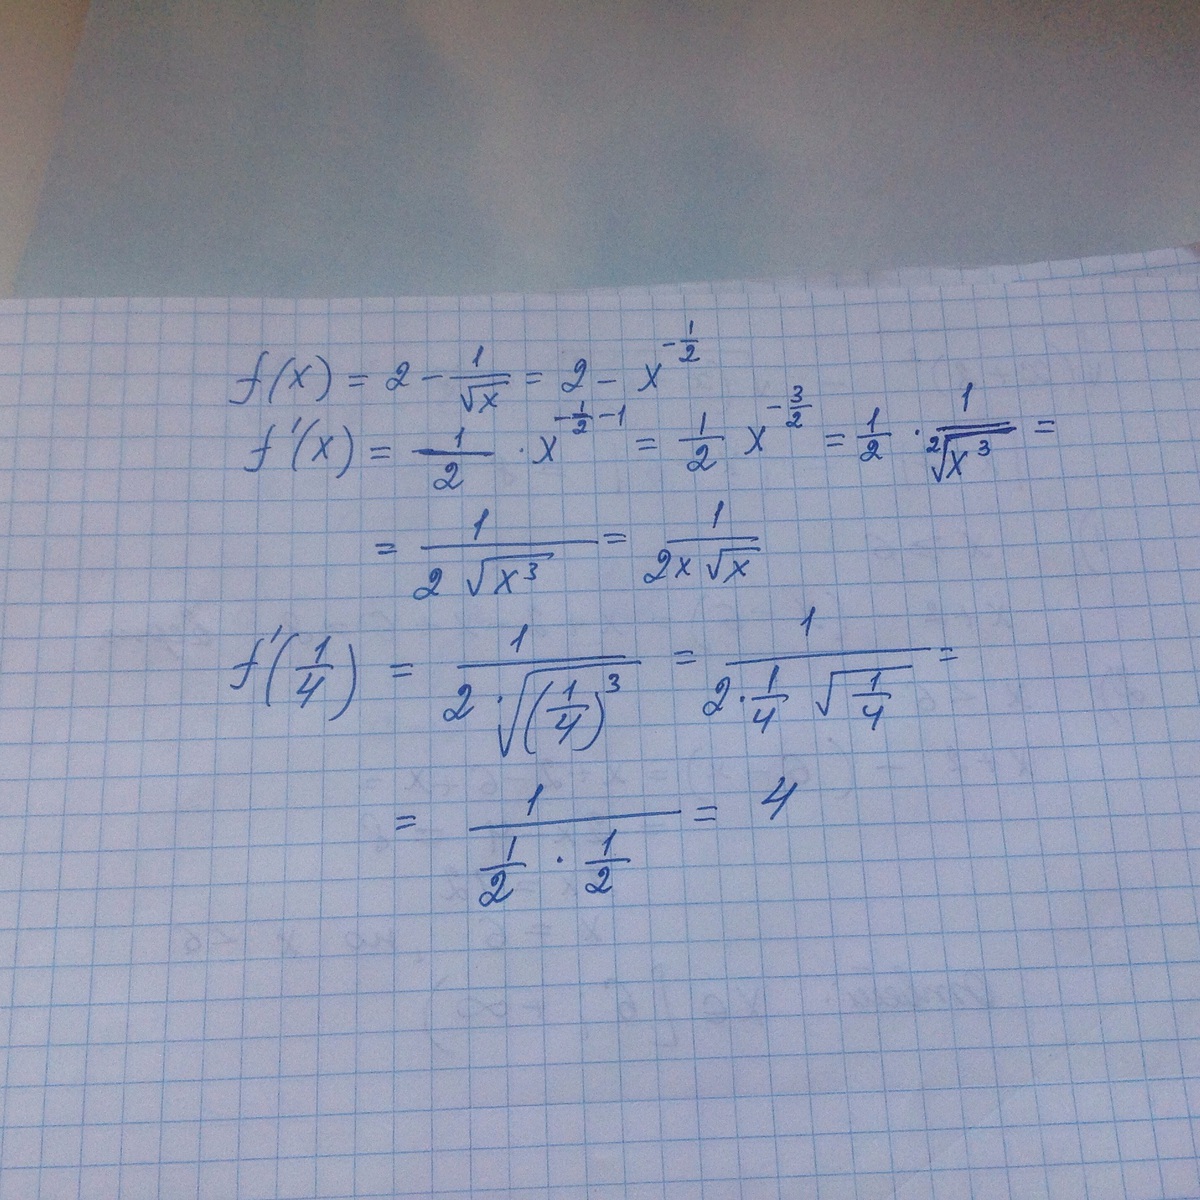 f(x) = 2 - 1/√x = 2 - x^(-1/2)
f'(x) = 1/2 · x^(-1/2 - 1) = 1/2 x^(-3/2) = 1/2 · 1/²√x³ =
= 1/(2√x³) = 1/(2x√x)
f'(1/4) = 1/(2 · √(1/4)³) = 1/(2 · 1/4 √(1/4)) =
= 1/(1/2 · 1/2) = 4